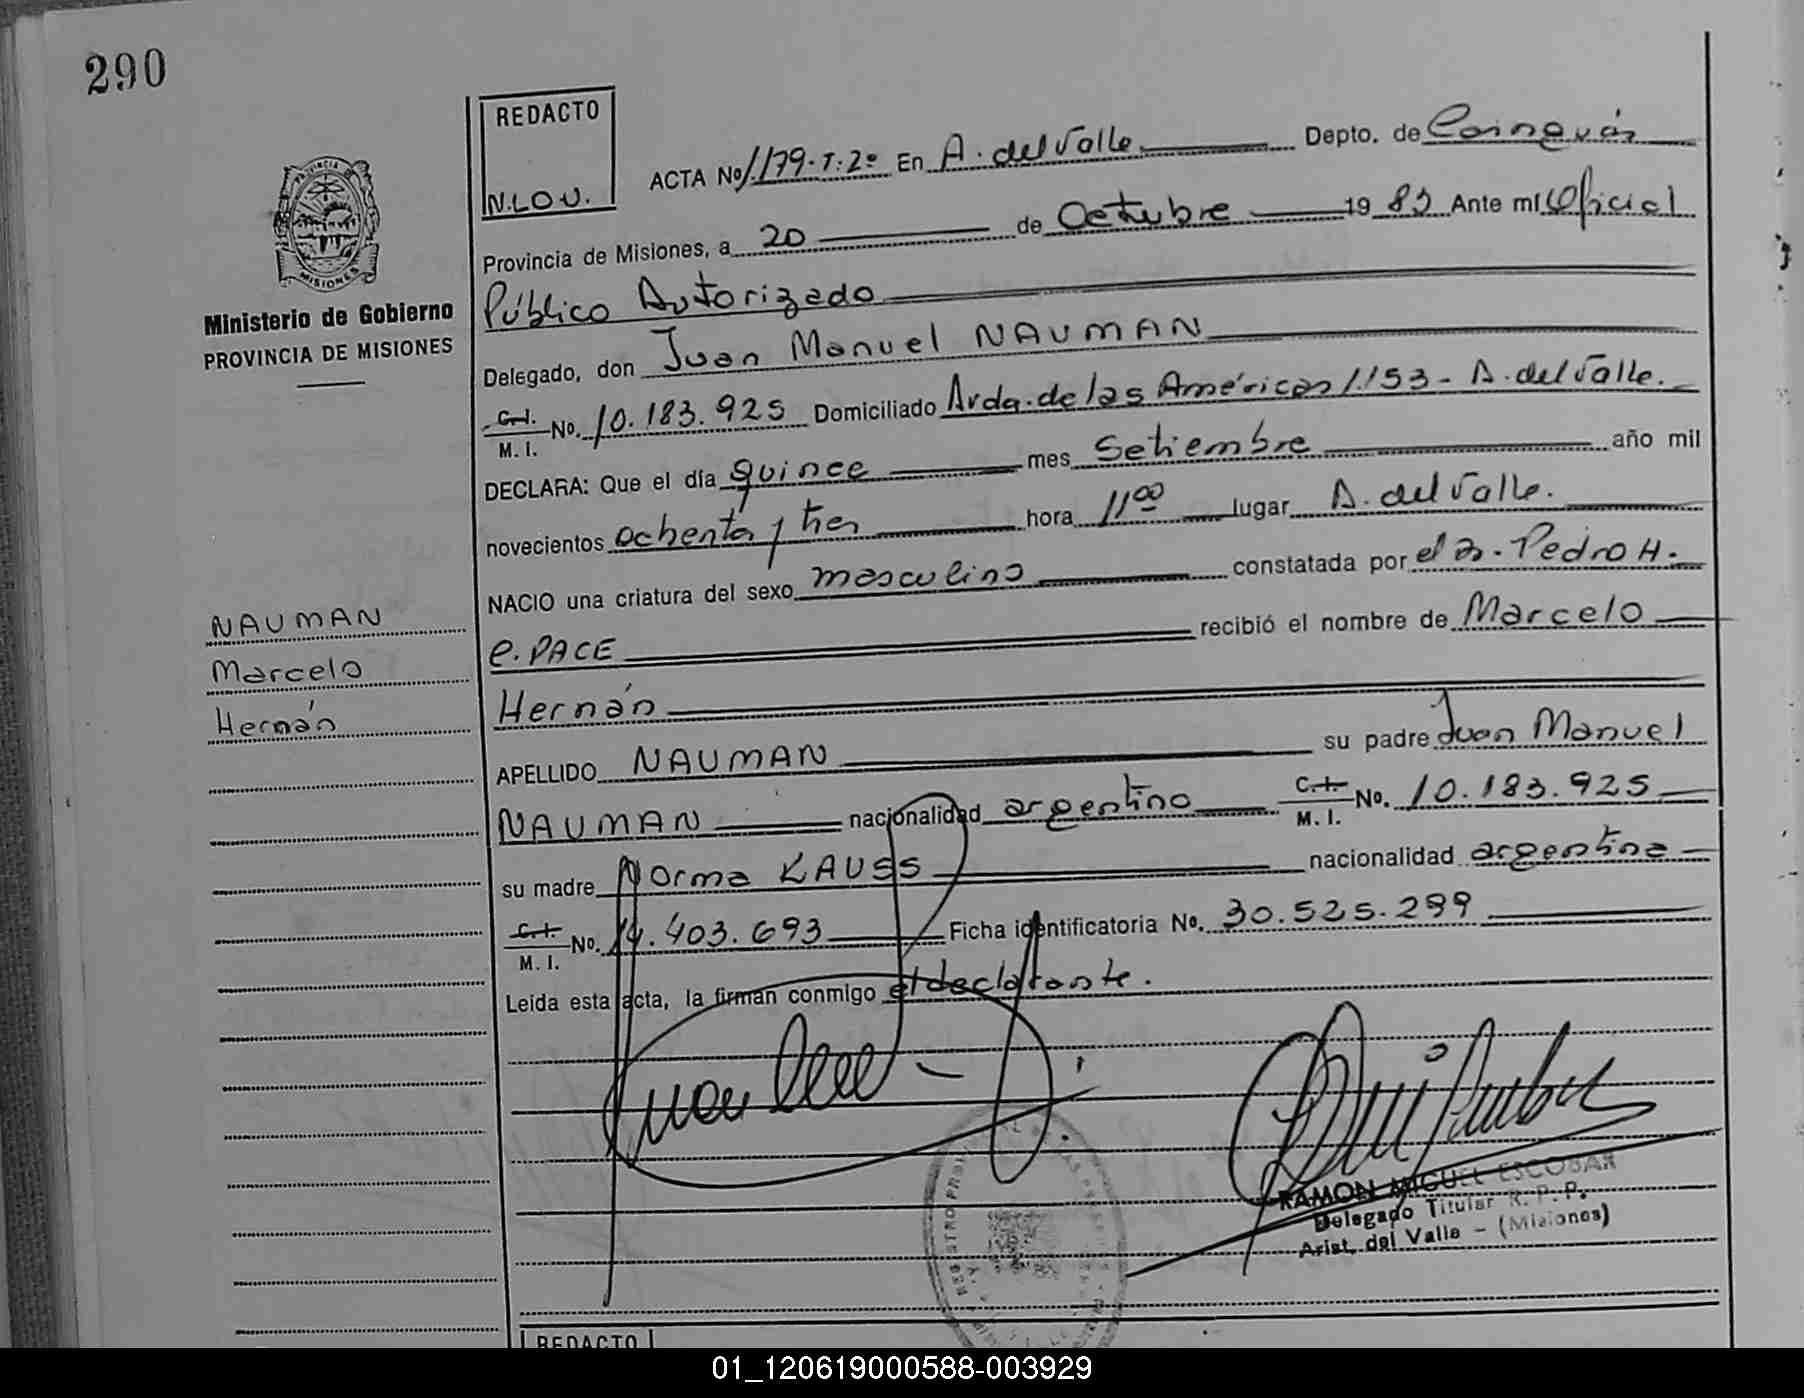 290
REDACTO
N.LO.U.
ACTA No 1179.T:2º En A. del Valle Depto. de Cainguás
Provincia de Misiones, a 20 de Octubre 19 83 Ante mí Oficial
Público Autorizado
Delegado, don Juan Manuel NAUMAN
C.I. M. I. No. 10.183.925 Domiciliado Avda. de las Américas 1153 - A. del Valle.
DECLARA: Que el día quince mes Setiembre año mil
novecientos ochenta y tres hora 11 00 lugar A. del Valle.
NACIO una criatura del sexo masculino constatada por el Dr. Pedro H.
e. PACE recibió el nombre de Marcelo
Hernán
APELLIDO NAUMAN su padre Juan Manuel
NAUMAN nacionalidad argentino C.I. M. I. No. 10.183.925
su madre Norma KAUSS nacionalidad argentina
C.I. M. I. No. 14.403.693 Ficha identificatoria No. 30.525.299
Leida esta acta, la firman conmigo el declarante.
PROVINCIA
MISIONES
Ministerio de Gobierno
PROVINCIA DE MISIONES
NAUMAN
Marcelo
Hernán
RAMON MIGUEL ESCOBAR
Delegado Titular R. P. P.
Arist. del Valle - (Misiones)
REDACTO
01_120619000588-003929